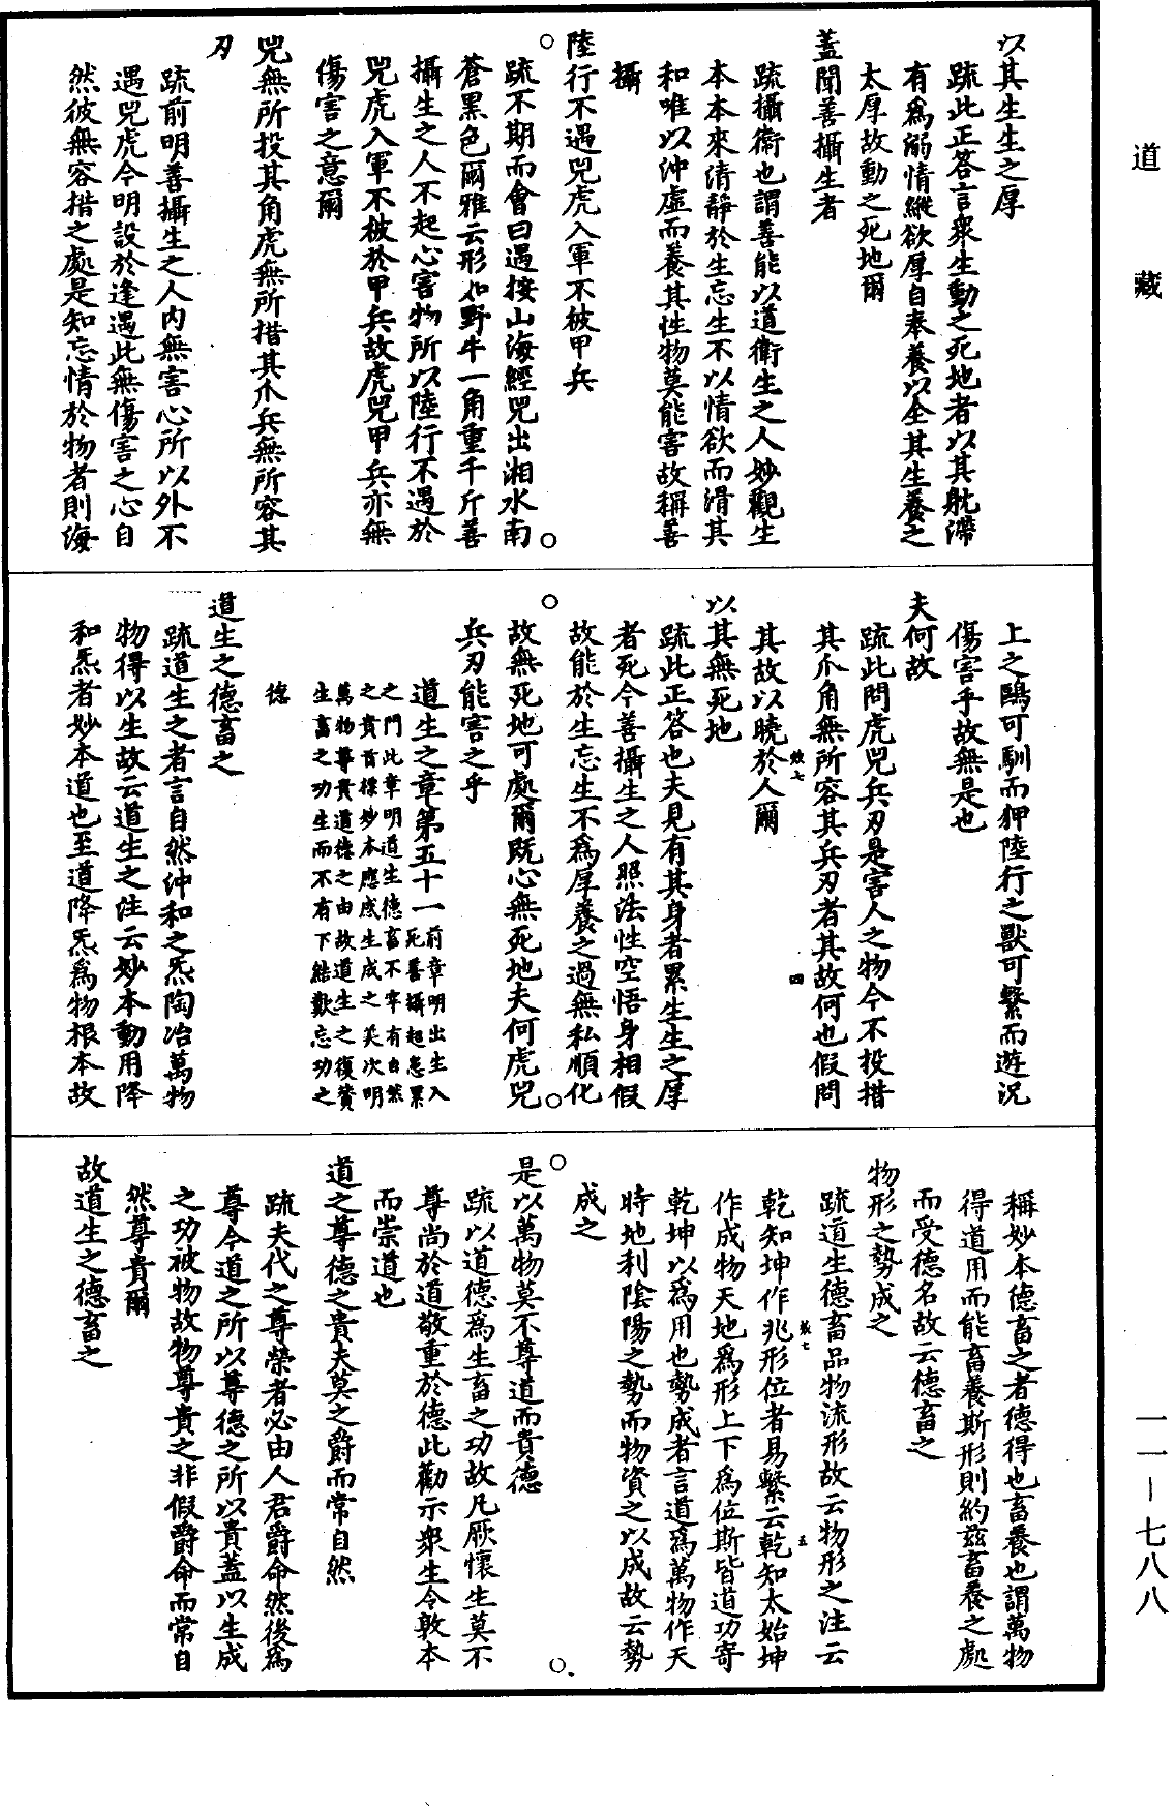 道藏
以其生生之厚
疏此正答言衆生動之死地者以其躭滯
有爲溺情縱欲厚自奉養以全其生養之
太厚故動之死地爾
蓋聞善攝生者
疏攝衛也謂善能以道衛生之人妙觀生
本本來清靜於生忘生不以情欲而滑其
和唯以沖虛而養其性物莫能害故稱善
攝
陸行不遇兕虎入軍不被甲兵
疏不期而會曰遇按山海經兕出湘水南
蒼黑色爾雅云形如野牛一角重千斤善
攝生之人不起心害物所以陸行不遇於
兕虎入軍不被於甲兵故虎兕甲兵亦無
傷害之意爾
兕無所投其角虎無所措其爪兵無所容其
刃
疏前明善攝生之人内無害心所以外不
遇兕虎今明設於逢遇此無傷害之心自
然彼無容措之處是知忘情於物者則海
上之鷗可馴而狎陸行之獸可繫而遊況
傷害乎故無是也
夫何故
疏此問虎兕兵刃是害人之物今不投措
其爪角無所容其兵刃者其故何也假問
其故以曉於人爾
以其無死地
疏此正答也夫見有其身者累生生之厚
者死今善攝生之人照法性空悟身相假
故能於生忘生不爲厚養之過無私順化
故無死地可處爾既心無死地夫何虎兕
兵刃能害之乎
道生之章第五十一前章明出生入
死善攝超忘累
之門此章明道生德畜不宰有自然
之貴首標妙本應感生成之美次明
萬物尊貴道德之由故道生之復贊
生畜之功生而不有下結歎忘功之
德
道生之德畜之
疏道生之者言自然沖和之炁陶冶萬物
物得以生故云道生之注云妙本動用降
和炁者妙本道也至道降炁爲物根本故
稱妙本德畜之者德得也畜養也謂萬物
得道用而能畜養斯形則約兹畜養之處
而受德名故云德畜之
物形之勢成之
疏道生德畜品物流形故云物形之注云
乾知坤作兆形位者易繫云乾知太始坤
作成物天地爲形上下爲位斯皆道功寄
乾坤以爲用也勢成者言道爲萬物作天
時地利陰陽之勢而物資之以成故云勢
成之
是以萬物莫不尊道而貴德
疏以道德爲生畜之功故凡厥懷生莫不
尊尚於道敬重於德此勸示衆生令敦本
而崇道也
道之尊德之貴夫莫之爵而常自然
疏夫代之尊榮者必由人君爵命然後爲
尊今道之所以尊德之所以貴蓋以生成
之功被物故物尊貴之非假爵命而常自
然尊貴爾
故道生之德畜之
一一－七八八